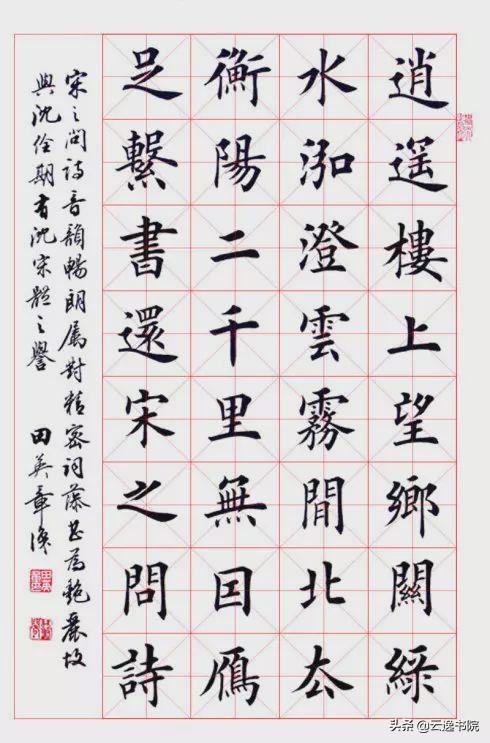 逍遥樓上望鄉關綠
水泓澄雲霧間北去
衡陽二千里無囙鴈
足繫書還宋之問詩
宋之问詩音韻暢朗属對精密词藻甚為艳麗故
與沈佺期有沈宋體之譽
田英章
头条 @云逸书院